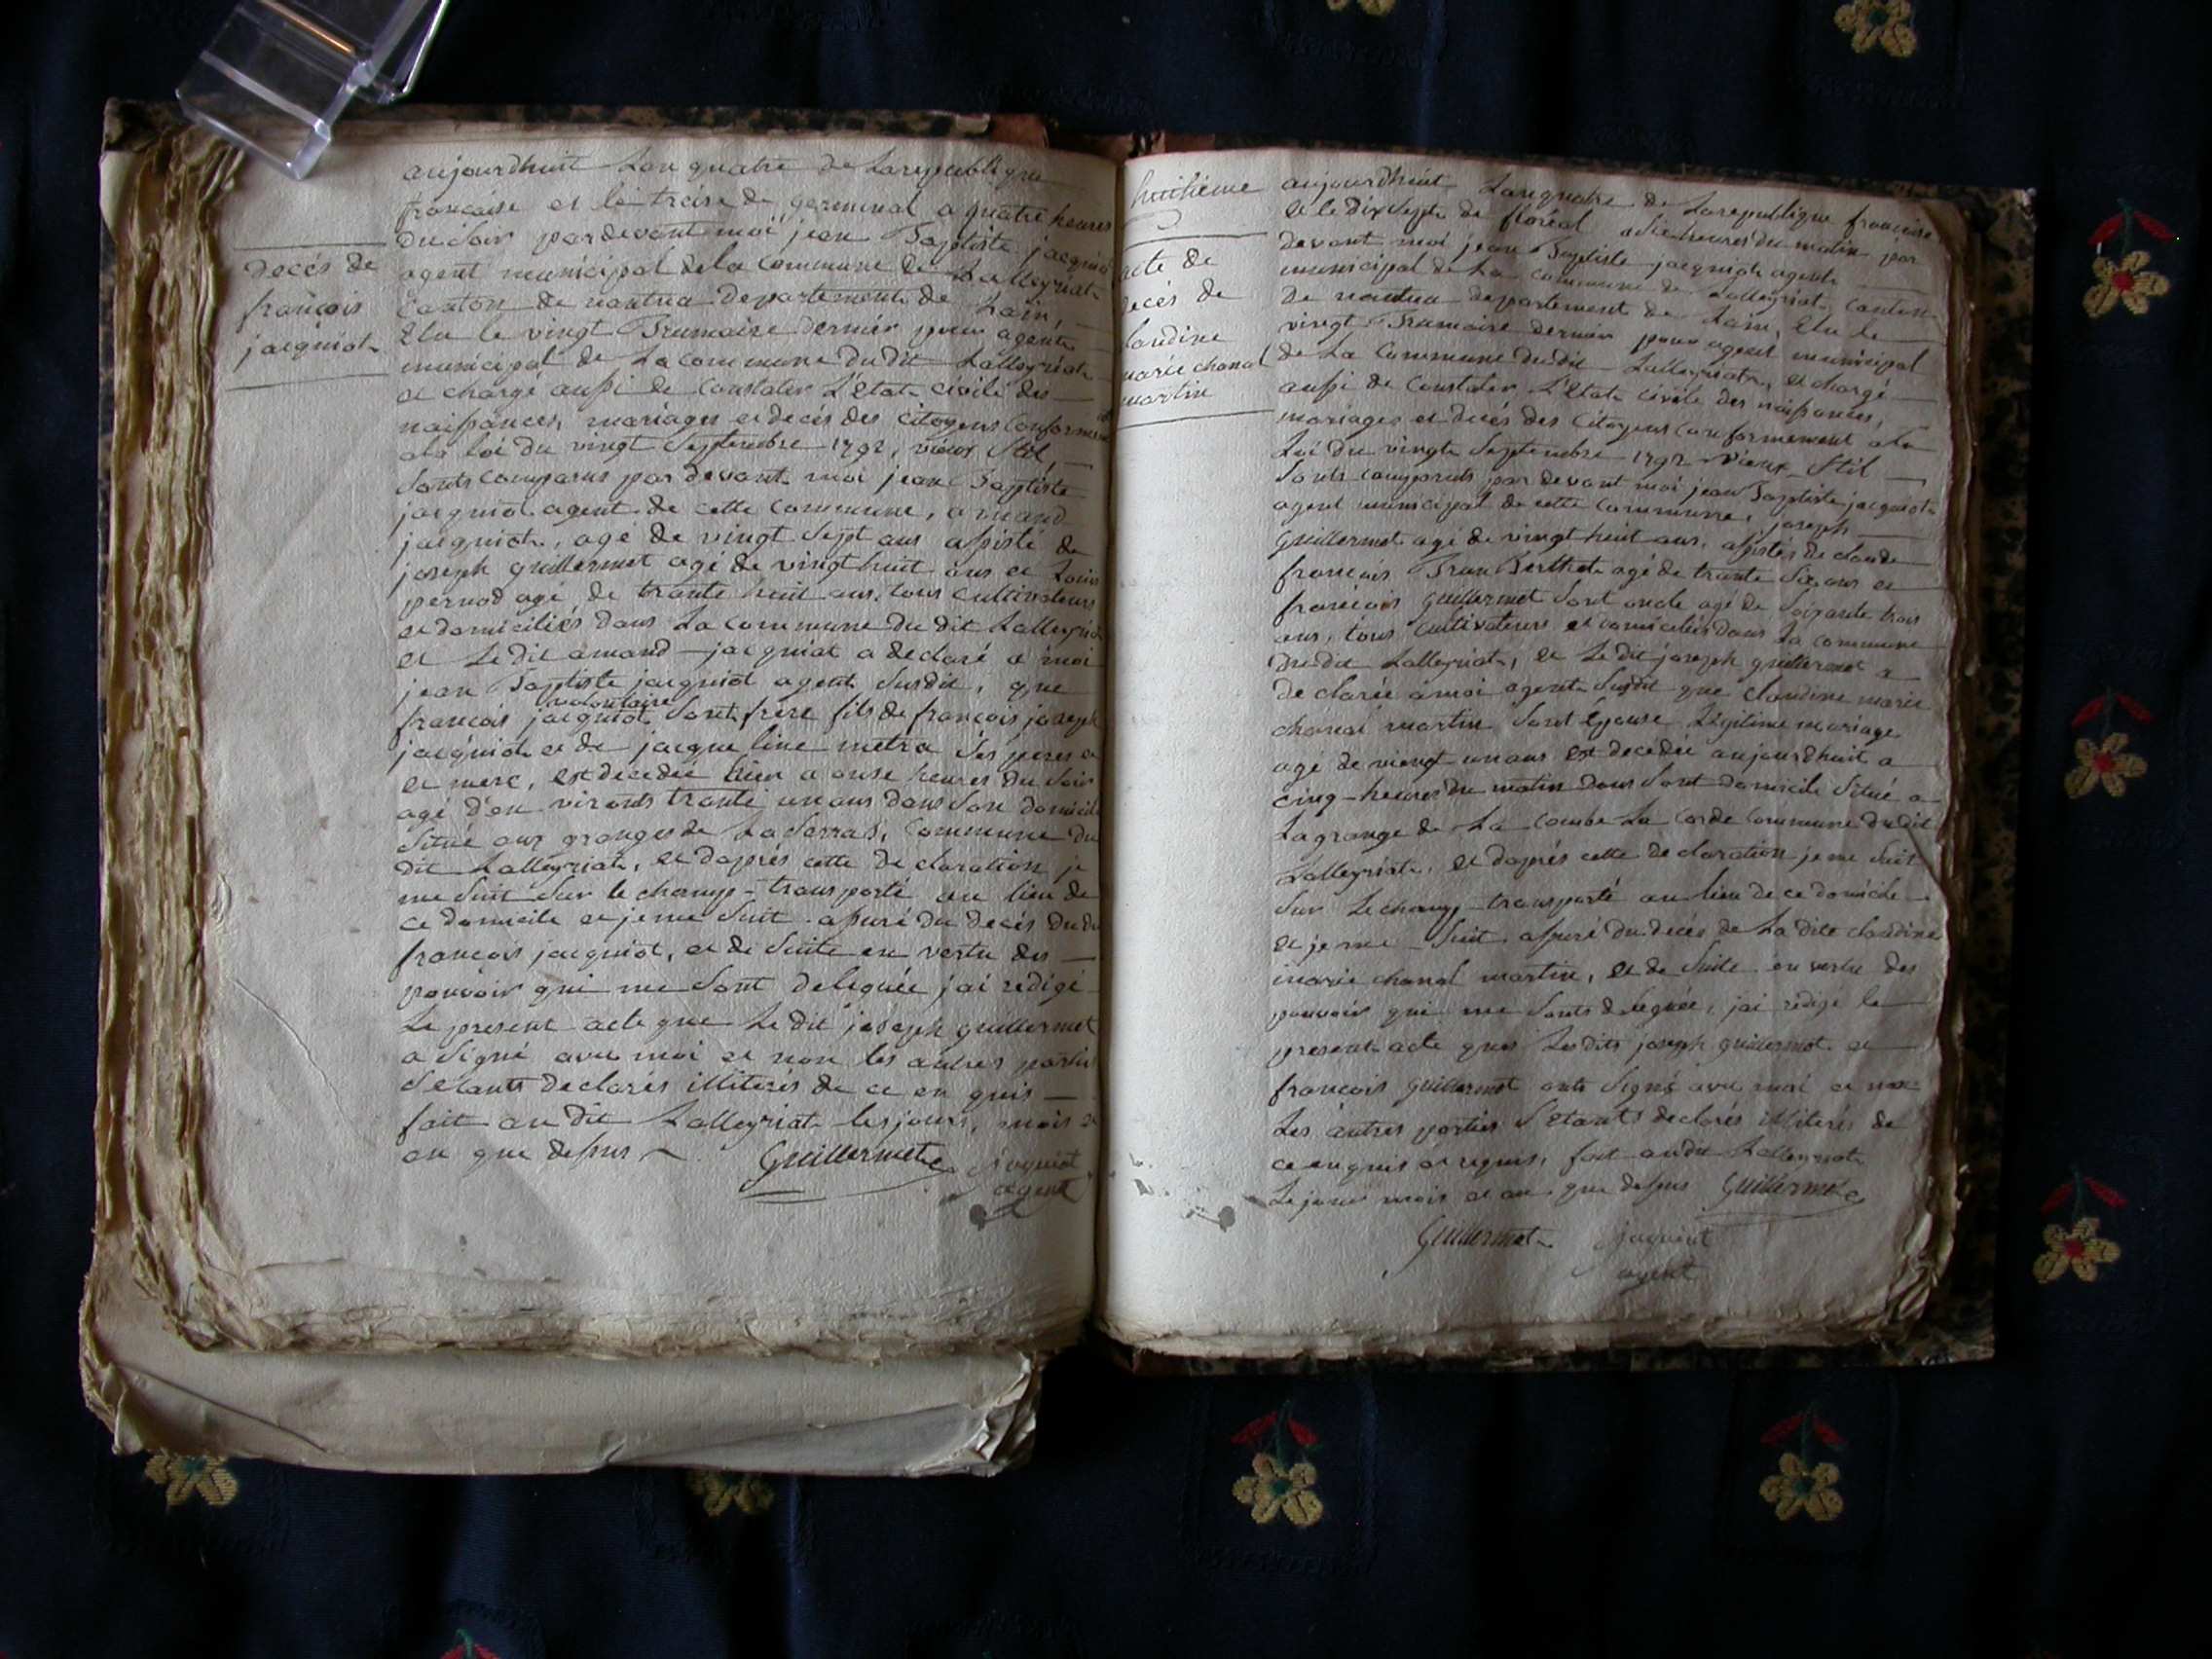 decés de
françois
jacquiot
aujourdhuit Lan quatre de Larepublique
francaise et le treise de germinal a quatre heures
du soir par devant moi jean Baptiste jacquiot
agent municipal de la commune de Lalleyriat
Canton de nantua departement de Lain,
Elu le vingt Frumaire dernier pour agent
municipal de La commune du dit Lalleyriat
et chargé aussi de constater L'Etat civile des
naissances, mariages et decés des citoyens conformement
ala loi du vingt Septembre 1792, vieux Stil,
Sonts comparus par devant moi jean Baptiste
jacquiot agent de cette commune, amand
jacquiot, agé de vingt Sept ans assisté de
joseph guillermet agé de vingt huit ans et Louis
pernod agé de trante huit ans, tous cultivateurs
et domiciliés dans La commune du dit Lalleyriat
et Le dit amand jacquiot a declaré a moi
jean Baptiste jacquiot agent Susdit, que
volontaire
françois jacquiot Sont frere fils de françois joseph
jacquiot et de jacqueline metra Ses peres et
et mere, est decedée hier a onse heures du Soir
agé d'en vironts trante un ans dans Son domicile
Situé aux granges de La Serras, commune du
dit Lalleyriat, et daprés cette declaration je
me Suit Sur le champ transporté au lieu de
ce domicile et je me Suit assuré du decés du dit
françois jacquiot, et de Suite en vertu des
pouvoir qui me Sont deleguée jai rédigé
Le present acte que Le dit joseph guillermet
a Signé avec moi et non les autres parties
S'etants declarés illiterés de ce en quis
fait au dit Lalleyriat les jours, mois et
an que dessus
Guillermet jacquiot
agent
huitième
acte de
decés de
claudine
marie chanal
martin
aujourdhuit Lan quatre de Larepublique francaise
et le dix Sept de floréal a Six heures du matin par
devant moi jean Baptiste jacquiot agent
municipal de La commune de Lalleyriat, Canton
de nantua departement de Lain, Elu le
vingt Frumaire dernier pour agent municipal
de La Commune du dit Lalleyriat, et chargé
aussi de constater L'Etat civile des naissances,
mariages et decés des Citoyens conformement ala
Loi du vingt Septembre 1792 vieux Stil
Sonts comparuts par devant moi jean Baptiste jacquiot
agent municipal de cette commune, joseph
guillermet agé de vingt huit ans, assistés de claude
françois Fran Berthet agé de trante Six ans et
françois guillermet Sont oncle agé de Soixante trois
ans, tous cultivateurs et domiciliés dans La commune
du dit Lalleyriat, et Le dit joseph guillermet a
declarée a moi agent Susdit que claudine marie
chanal martin Sont Epouse Légitime mariage
agé de vingt un ans est decedée aujourdhuit a
cinq heures du matin dans Sont domicile Situé a
La grange de La combe La corde commune du dit
Lalleyriat, et daprés cette declaration je me Suit
Sur Le champ transporté au lieu de ce domicile
et je me Suit assuré du decés de La dite claudine
marie chanal martin, et de Suite en vertu des
pouvoir qui me Sonts deleguée, jai rédigé le
present acte que Lesdits joseph guillermet et
françois guillermet onts Signé avec moi et non
Les autres parties S'etants declarés illiterés de
ce enquis et requis, fait au dit Lalleyriat
Le jour mois et an que dessus Guillermet
Guillermet jacquiot
agent